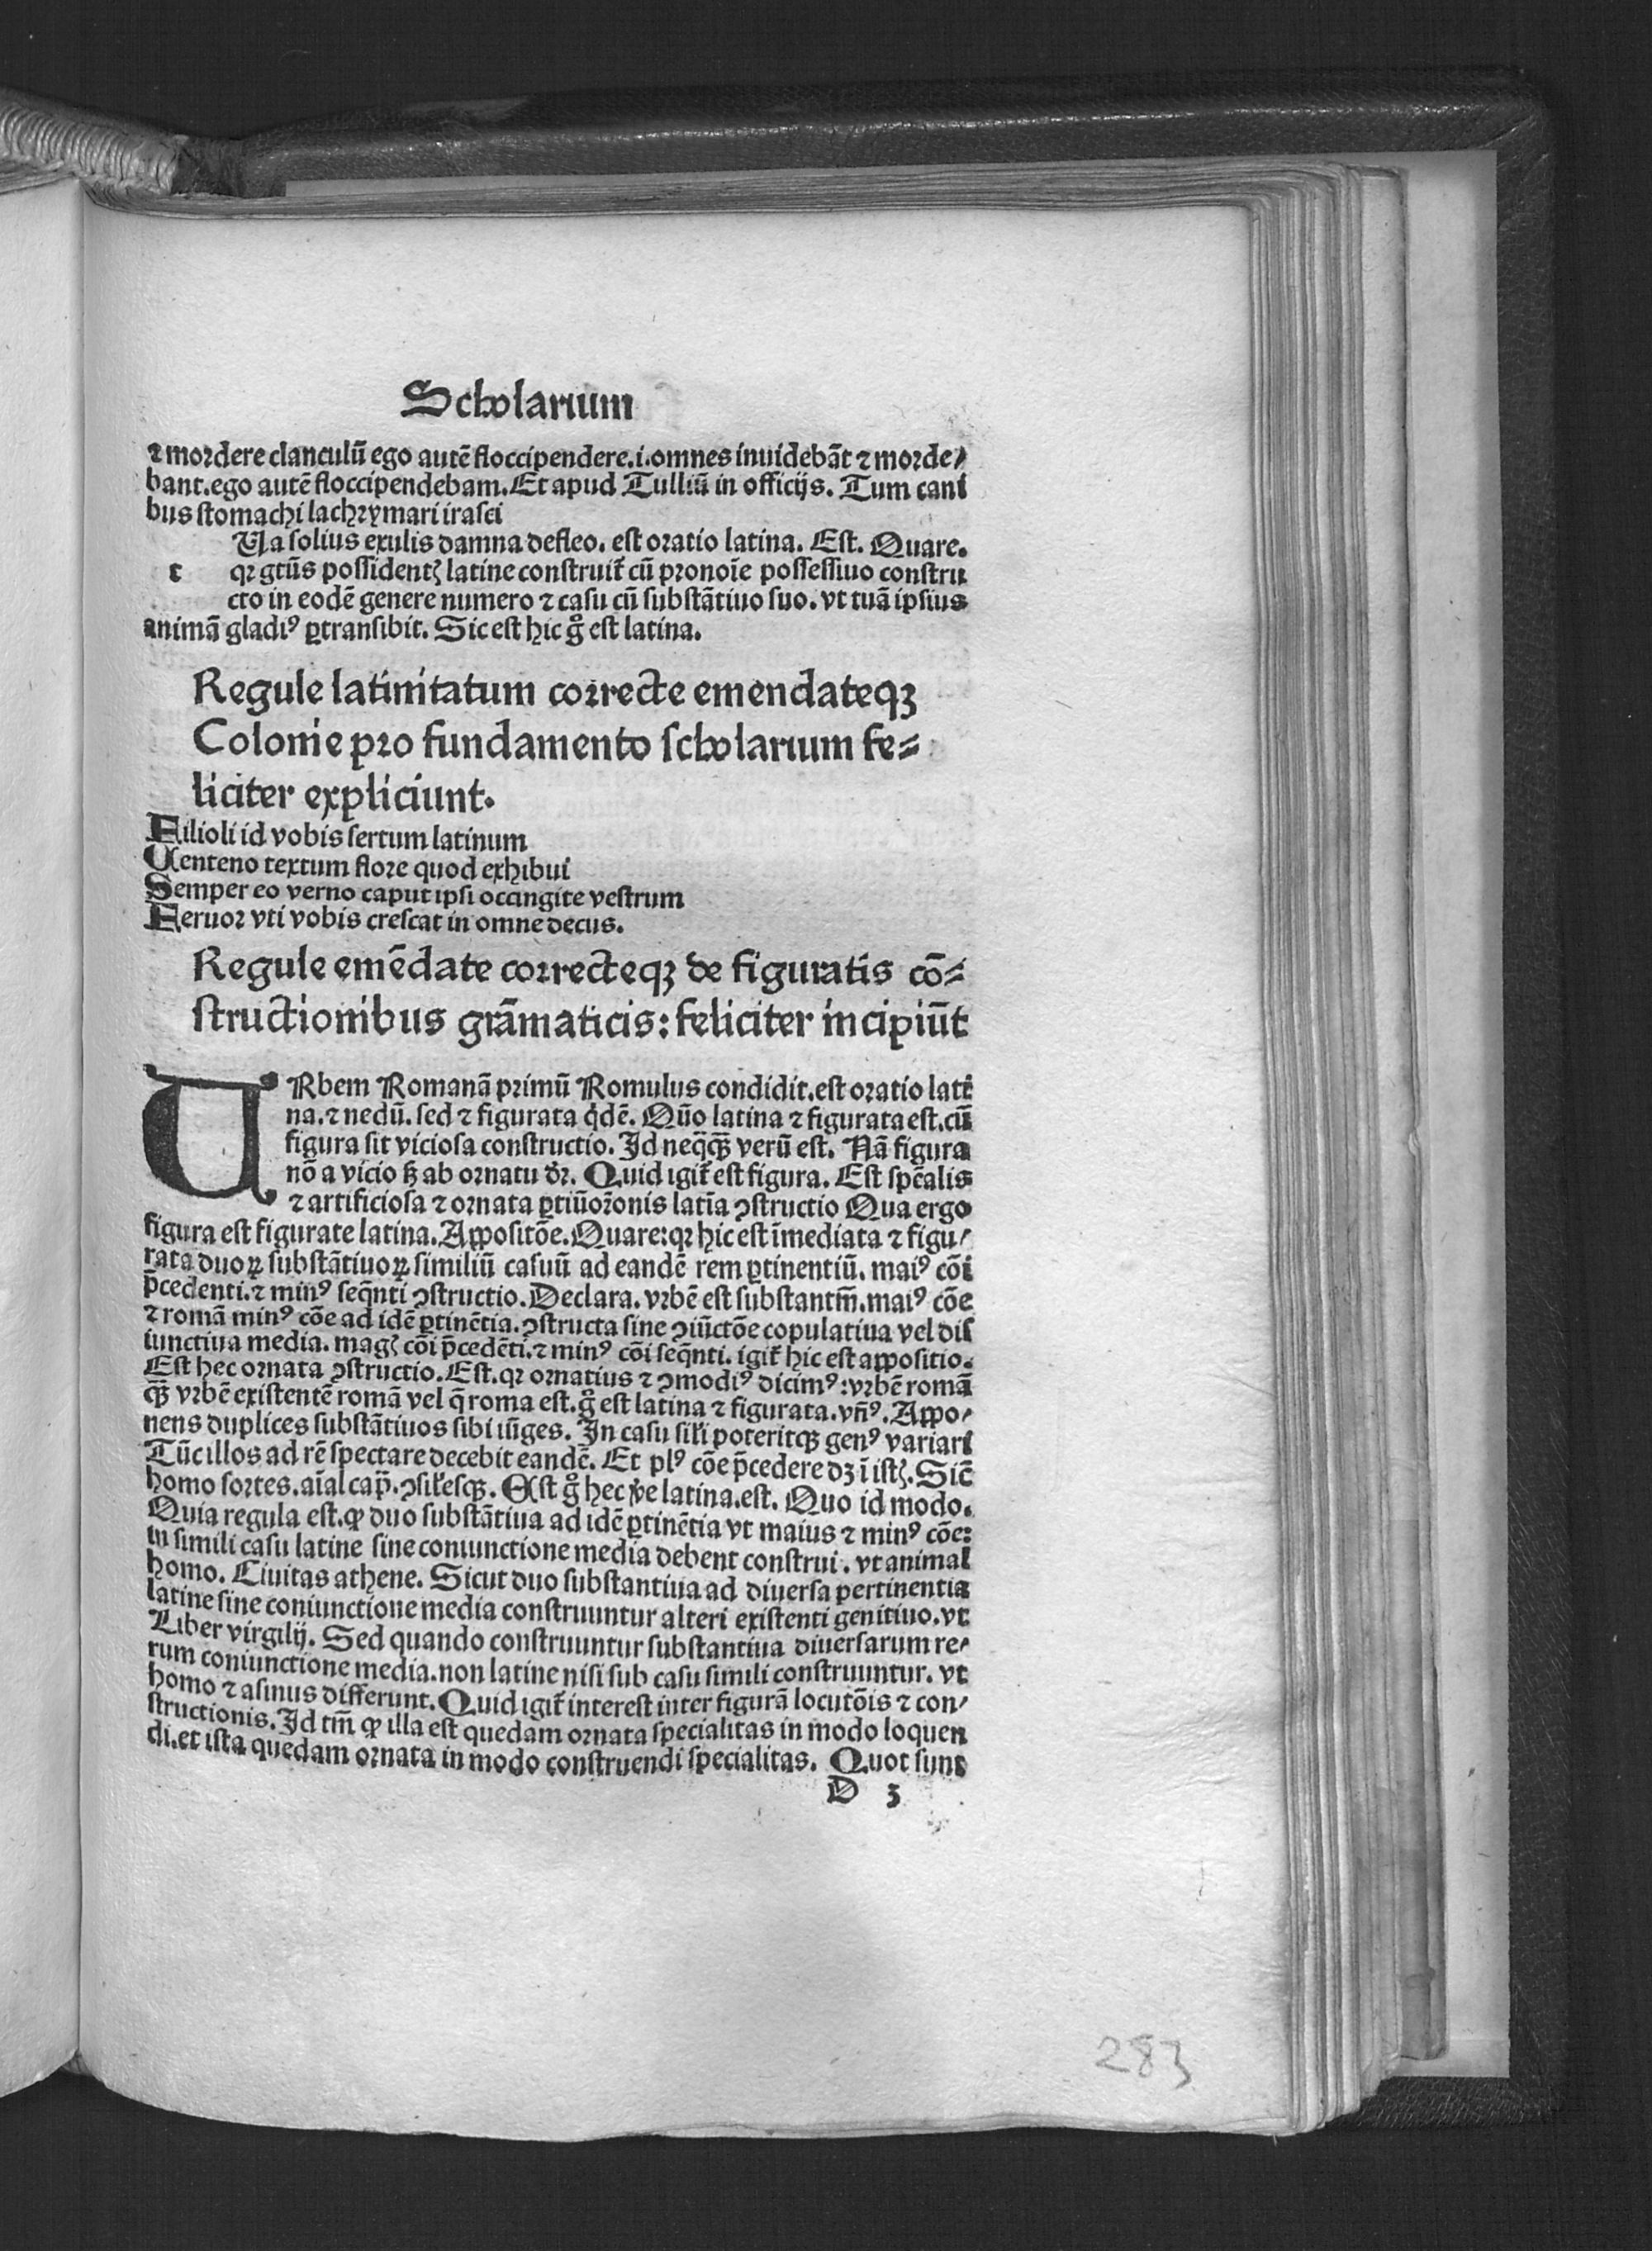 Scholarium
⁊ mordere clanculū ego autē floccipendere.i.omnes inuidebāt ⁊ morde⸗
bant.ego autē floccipendebam. Et apud Tulliū in officijs. Tum cani
bus stomachi lachrymari irasci
Ua solius exulis damna defleo. est oratio latina. Est. Quare.
t qꝛ gtūs possidentꝭ latine construit̄ cū pronoīe possessiuo constru
cto in eodē genere numero ⁊ casu cū substātiuo suo. vt tuā ipsius
animā gladiꝰ ꝑtransibit. Sic est hic gͦ est latina.
Regule latinitatum correcte emendateqꝫ
Colonie pro fundamento scholarium fe⸗
liciter expliciunt.
Filioli id vobis sertum latinum
Centeno textum flore quod exhibui
Semper eo verno caput ipsi occingite vestrum
Feruor vti vobis crescat in omne decus.
Regule emēdate correcteqꝫ de figuratis cō⸗
structionibus grāmaticis: feliciter incipiūt
URbem Romanā primū Romulus condidit.est oratio lati
na.⁊ nedū. sed ⁊ figurata q̇dē. Quō latina ⁊ figurata est.cū
figura sit viciosa constructio. Id neq̄qꝫ̄ verū est. Nā figura
nō a vicio ꝓ ab ornatu dr̄. Quid igit̄ est figura. Est spēalis
⁊ artificiosa ⁊ ornata ꝑtiūor̄onis latīa ꝯstructio Qua ergo
figura est figurate latina. Appositōe. Quare: qꝛ hic est īmediata ⁊ figu⸗
rata duoꝝ substātiuoꝝ similiū casuū ad eandē rem ꝑtinentiū. maiꝰ cōi
p̄cedenti.⁊ minꝰ seq̄nti ꝯstructio. Declara. vrbē est substantm̄. maiꝰ cōe
⁊ romā minꝰ cōe ad idē ꝑtinētia. ꝯstructa sine ꝯiūctōe copulatiua vel dis
iunctiua media. magꝭ cōi p̄cedēti.⁊ minꝰ cōi seq̄nti. igit̄ hic est appositio.
Est hec ornata ꝯstructio. Est. qꝛ ornatius ⁊ ꝯmodiꝰ dicimꝰ: vrbē romā
qꝫ̄ vrbē existentē romā vel q̄ roma est. gͦ est latina ⁊ figurata. vn̄ꝰ. Appo⸗
nens duplices substātiuos sibi iūges. In casu sil̄i poteritqꝫ genꝰ variari
Tūc illos ad rē spectare decebit eandē. Et plꝰ cōe p̄cedere dꝫ ī istꝭ. Sic̄
homo sortes. aīal cap̄. ꝯsil̄esqꝫ. Est gͦ hec v̄e latina.est. Quo id modo.
Quia regula est. ꝙ duo substātiua ad idē ꝑtinētia vt maius ⁊ minꝰ cōe:
in simili casu latine sine coniunctione media debent construi. vt animal
homo. Ciuitas athene. Sicut duo substantiua ad diuersa pertinentia
latine sine coniunctione media construuntur alteri existenti genitiuo. vt
Liber virgilij. Sed quando construuntur substantiua diuersarum re⸗
rum coniunctione media. non latine nisi sub casu simili construuntur. vt
homo ⁊ asinus differunt. Quid igit̄ interest inter figurā locutōis ⁊ con⸗
structionis. Id tm̄ ꝙ illa est quedam ornata specialitas in modo loquen
di. et ista quedam ornata in modo construendi specialitas. Quot sunt
D 3
283